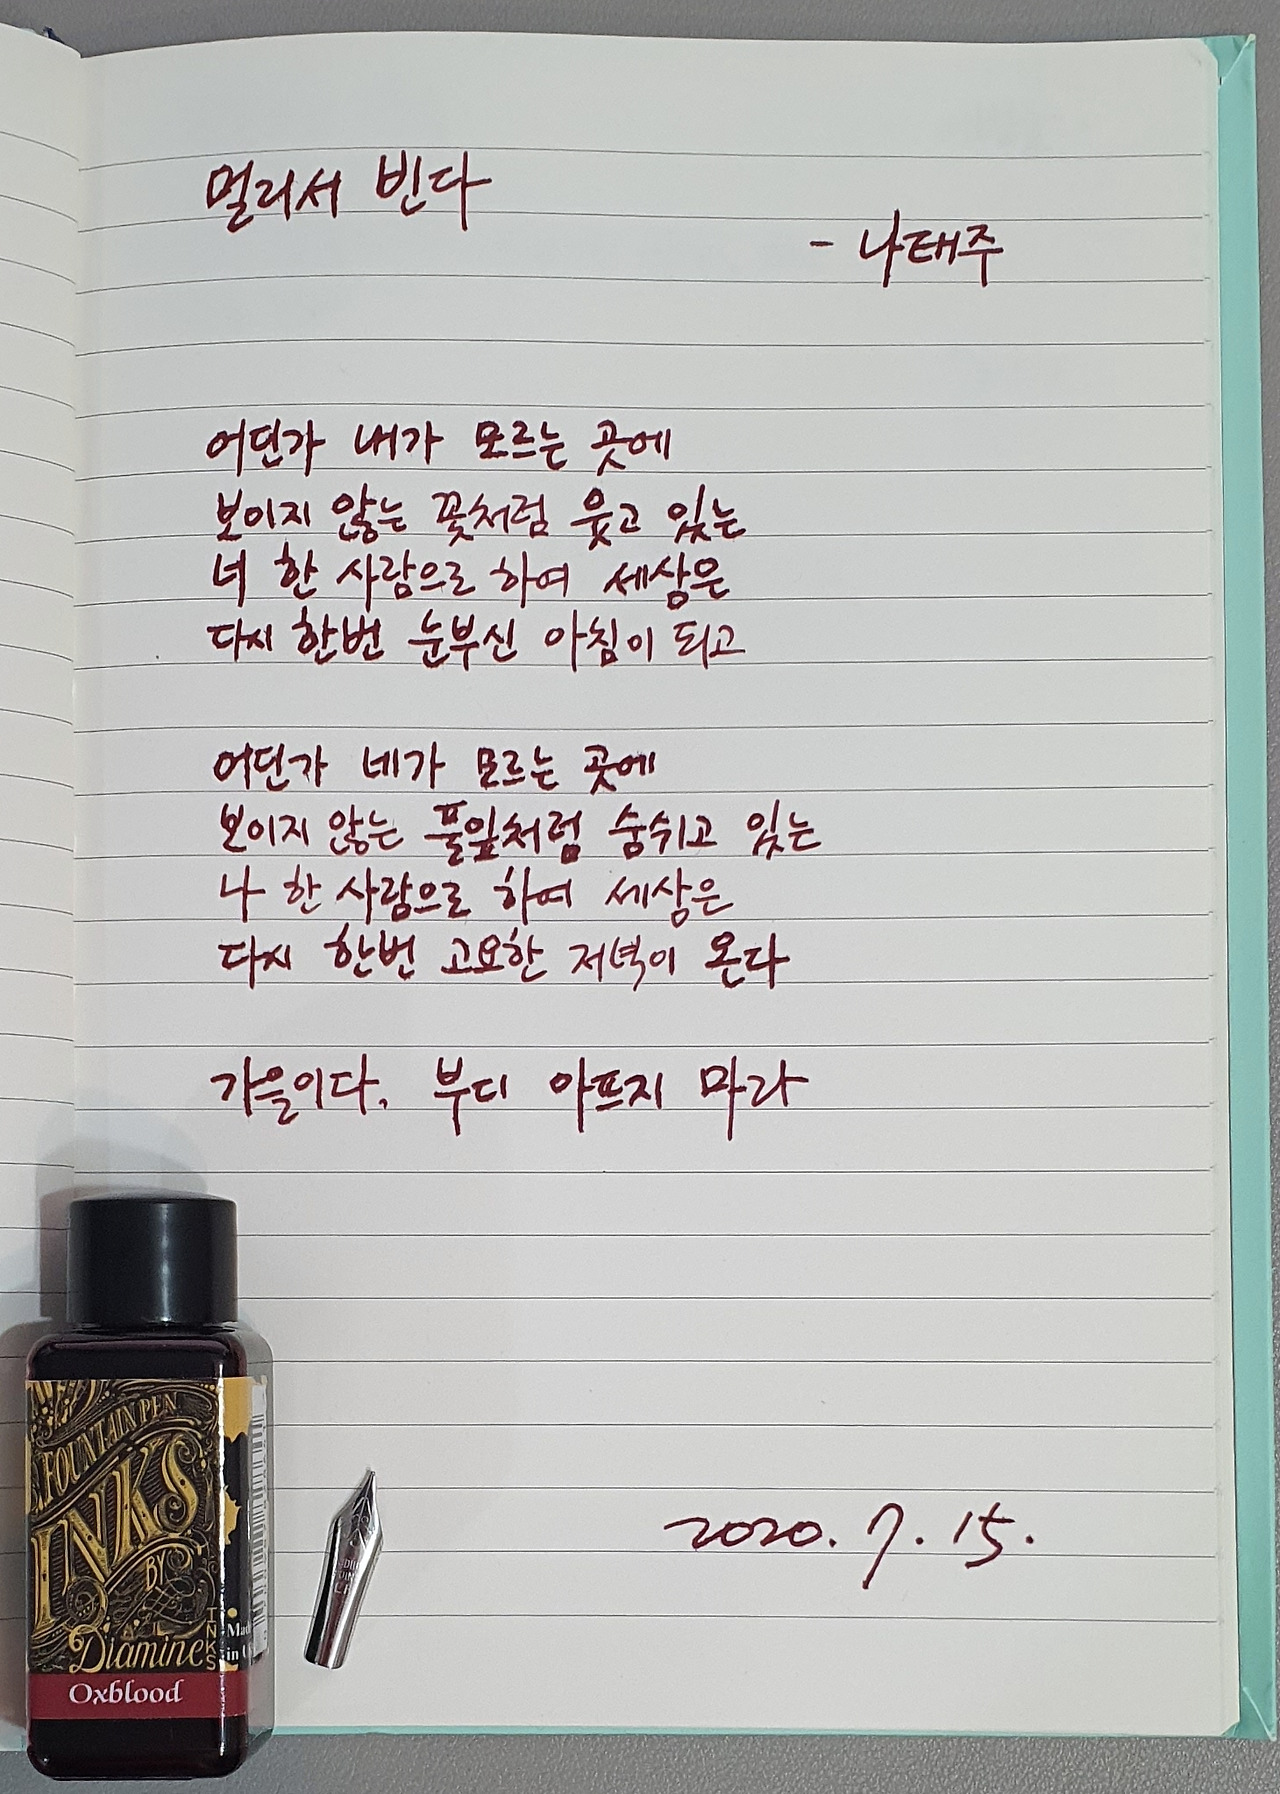 멀리서 빈다
- 나태주
어딘가 내가 모르는 곳에
보이지 않는 꽃처럼 웃고 있는
너 한 사람으로 하여 세상은
다시 한번 눈부신 아침이 되고
어딘가 네가 모르는 곳에
보이지 않는 풀잎처럼 숨쉬고 있는
나 한 사람으로 하여 세상은
다시 한번 고요한 저녁이 온다
가을이다, 부디 아프지 마라
2020. 7. 15.
FOUNTAIN PEN
INKS
BY
Diamine
INKS
Made
in
Oxblood